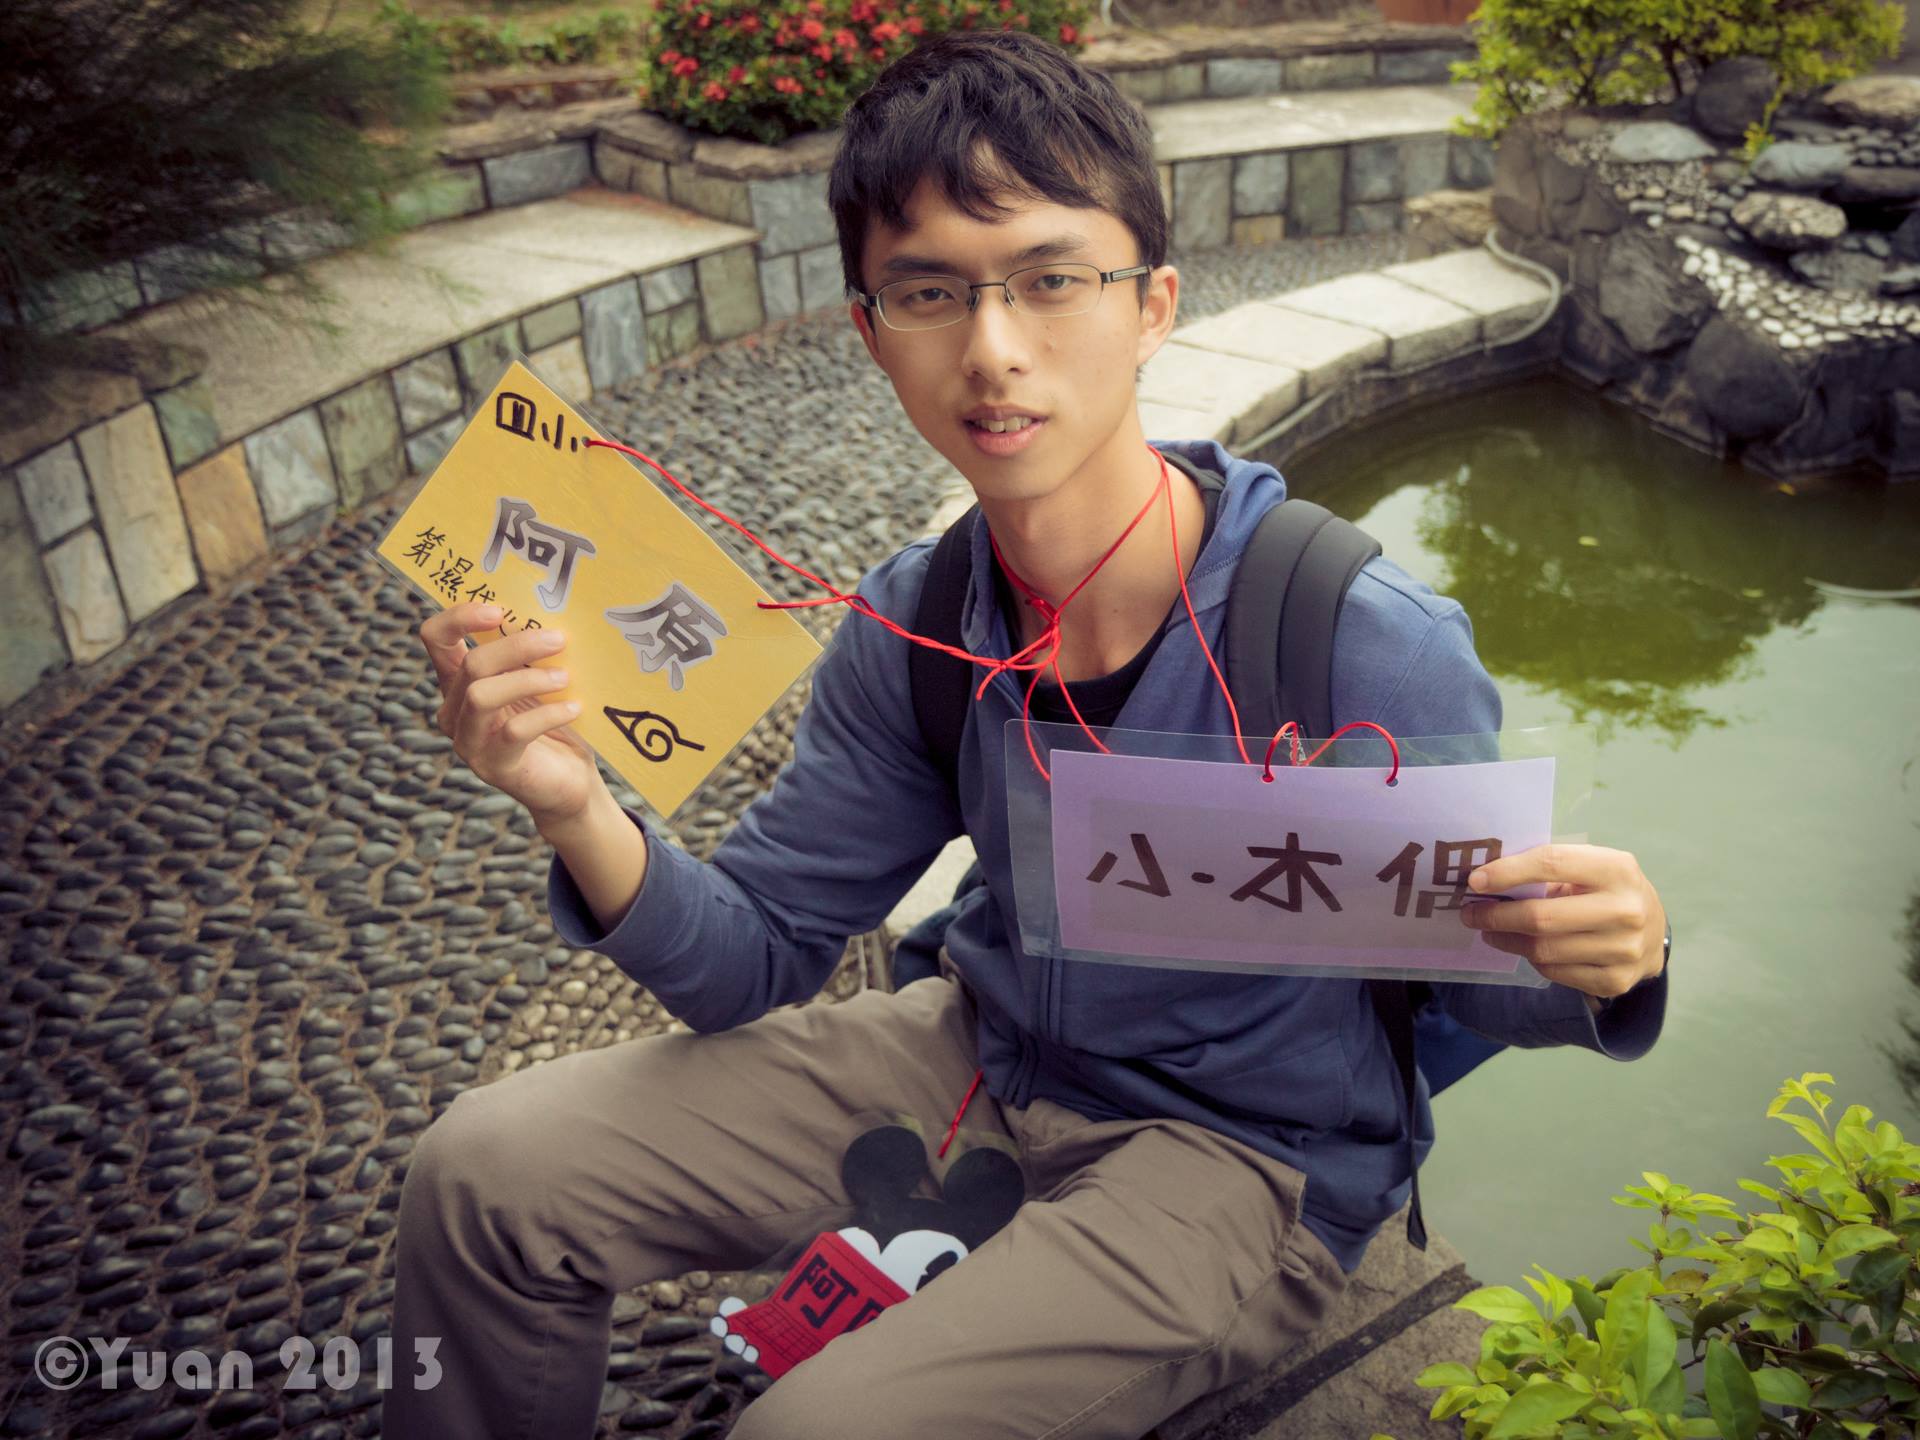 四小
阿原
第濕代
小木偶
阿
©Yuan 2013